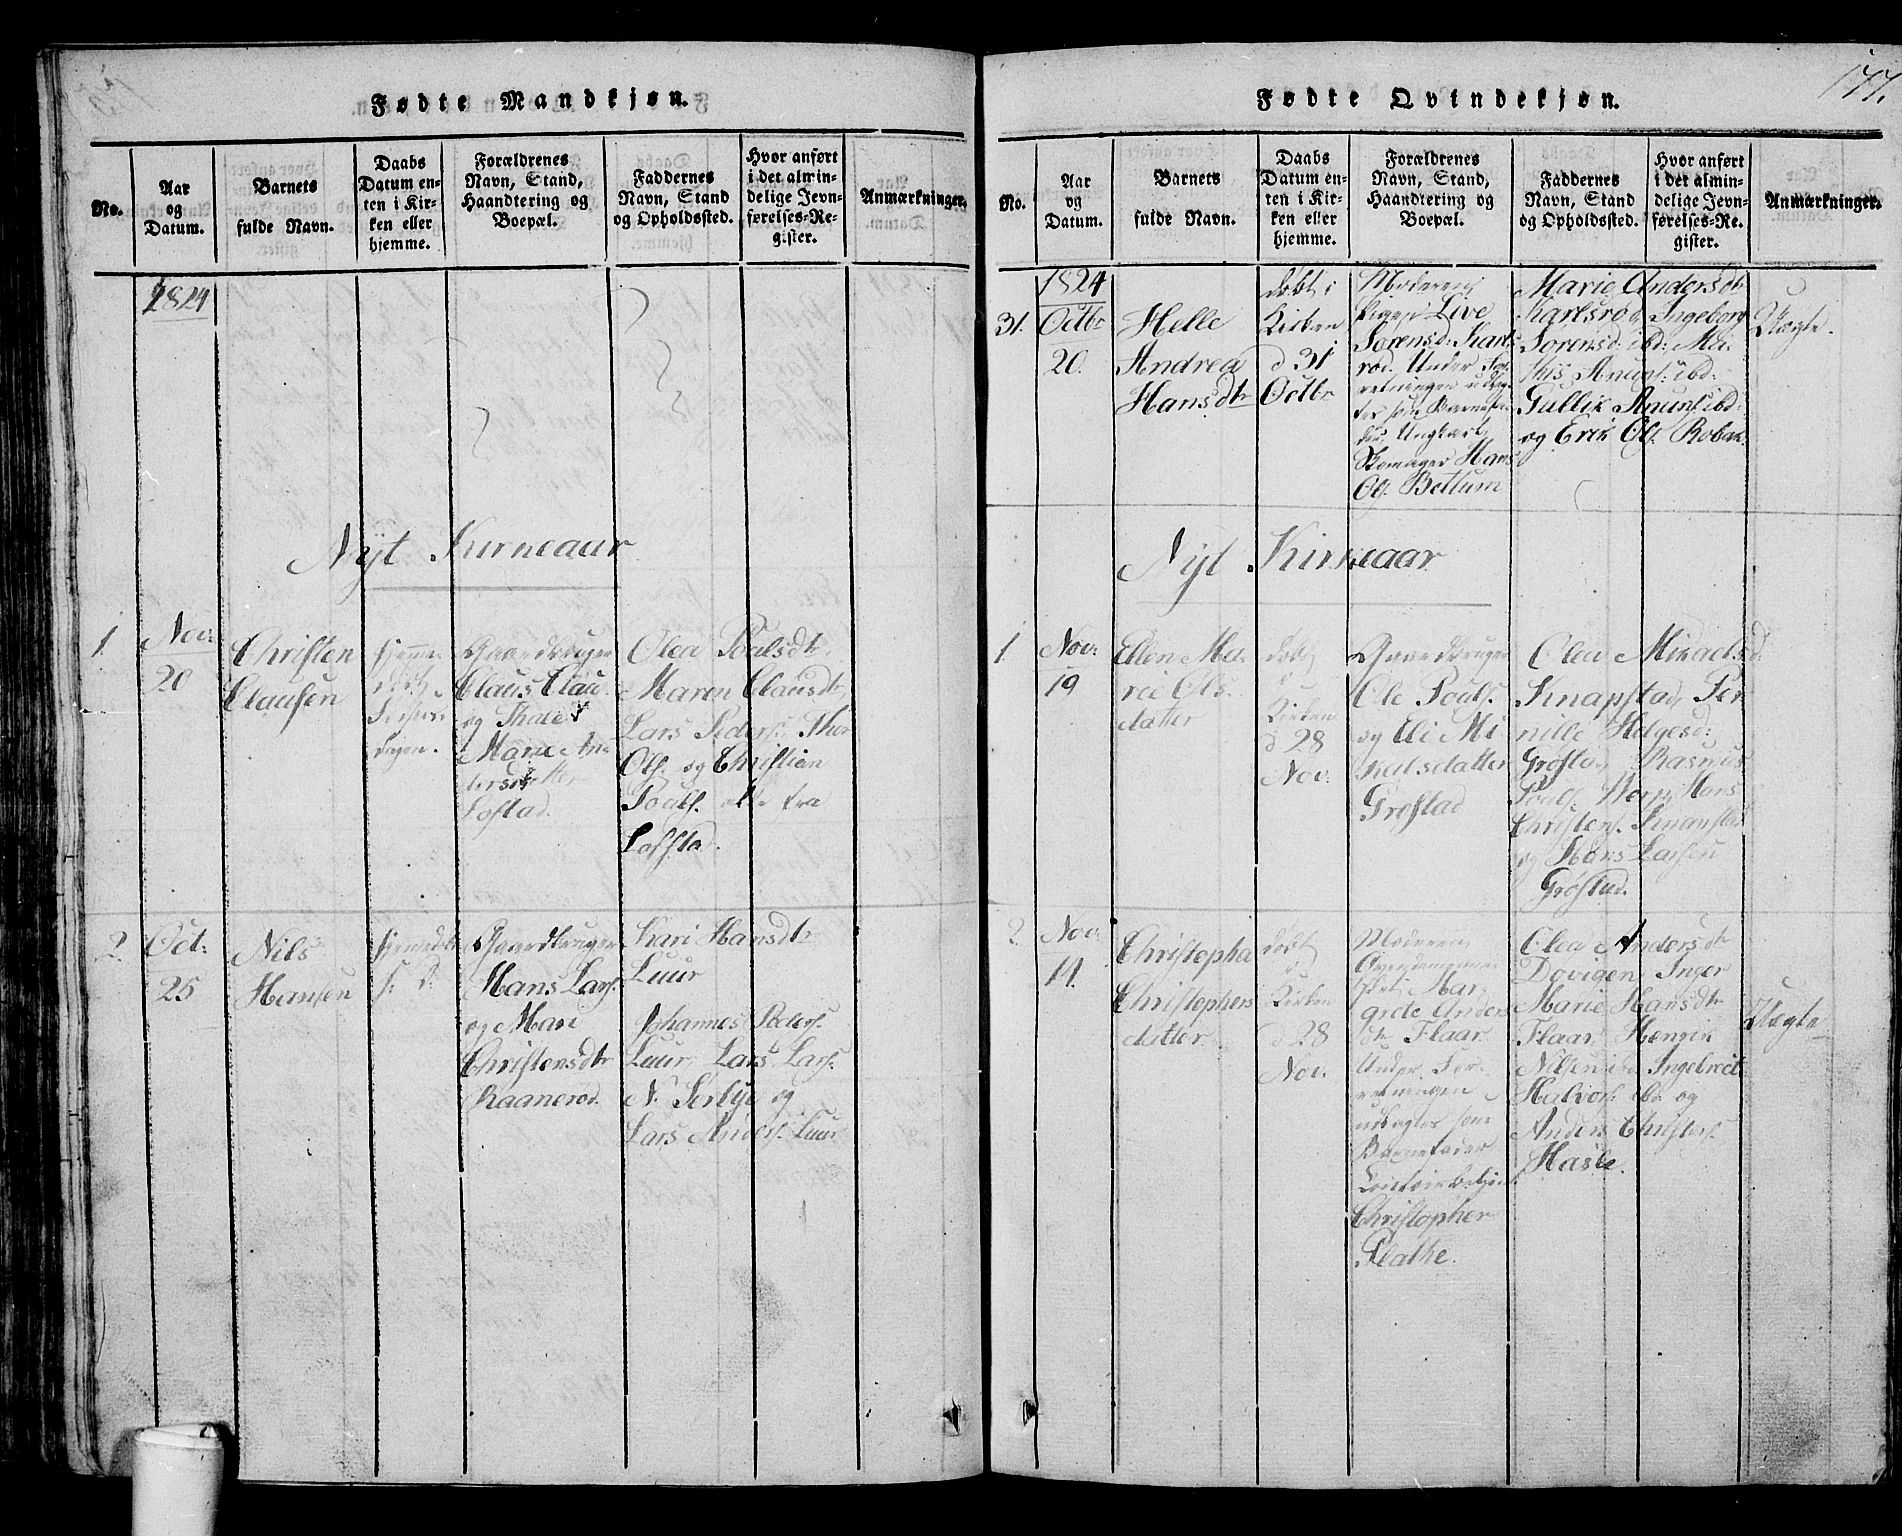 Fødte Mandkjøn.
No.
Aar
og
Datum.
Barnets
fulde Navn.
Daabs
Datum en-
ten i Kir-
ken eller
hjemme.
Forældrenes
Navn, Stand,
Haandtering og
Boepæl.
Faddernes
Navn, Stand
og Opholdssted.
Hvor anført
i det almin-
delige Jevn-
førelses-Re-
gister.
Anmærkninger.
1824
Nyt Kirkeaar
1.
Nov.
20
Christen
Clausen
hjemme
dagen.
Gaardbruger
Claus Clau-
og Thale
Marie An-
dersdatter
Lofstad.
Olea Poalsdtr.
Maren Clausdtr,
Lars Peders., Thor
Ols. og Christian
Poals. alle fra
Lofstad.
2.
Oct:
25
Nils
Hansen
hjemedbt
Gaardbruger
Hans Lars.
og Mari
Christensdtr
Raanerød.
Kari Hansdtr
Luur
Johannes Peders.
Luur, Lars Lars.
N. Serbye og
Lars Anders. Luur
Fødte Qvindekjøn.
177.
No.
Aar
og
Datum.
Barnets
fulde Navn.
Daabs
Datum en-
ten i Kir-
ken eller
hjemme.
Forældrenes
Navn, Stand,
Haandtering og
Boepæl.
Faddernes
Navn, Stand
og Opholdssted.
Hvor anført
i det almin-
delige Jevn-
førelses-Re-
gister.
Anmærkninger.
1824
31.
Octbr
20.
Helle
Andrea
Hansdtr
døbt i
Kirken
d 31
Octbr
Moderen
Pigen Live
Sorensd: Karls-
rød. Under For-
retningen udlag-
des som Barnefa-
der, Ungkarl,
Skomager Hans
Ols. Bettum
Marie Andersdtr
Karlsrød, Ingeborg
Sorensd: ibd: Ma-
this Anunds: ibd:
Gullik Anunds ibd:
og Erik Ols. Robak
Uægte.
Nyt Kirkeaar
1.
Nov.
19
Ellen Ma-
rie Ols-
datter
døbt
i
Kirken
d 28
Nov.
Gaardbruger
Ole Poals.
og Eli Mi-
kalsdatter
Grøstad
Olea Mikaelsd:
Knapstad, Per-
nille Helgesd:
Grøstad, Rasmus
Poals. Werp, Hans
Christens. Knapstad
og Hans Larsen
Grøstad.
2.
Nov.
14.
Christopha
Christophers
datter
døbt
i
Kirken
d 28
Nov.
Moderen,
Mar-
grete Anders-
dtr. Flaar.
Under For-
retningen
udlagdes som
Barnefader
Christopher
Plathe.
Olea Andersdtr
Dovigen, Inger
Marie Hansdtr
Flaar, Henrik
Nilsen ibd Ingebrecht
Halvors. ibd og
Anders Christofs.
Hasle.
Uægte